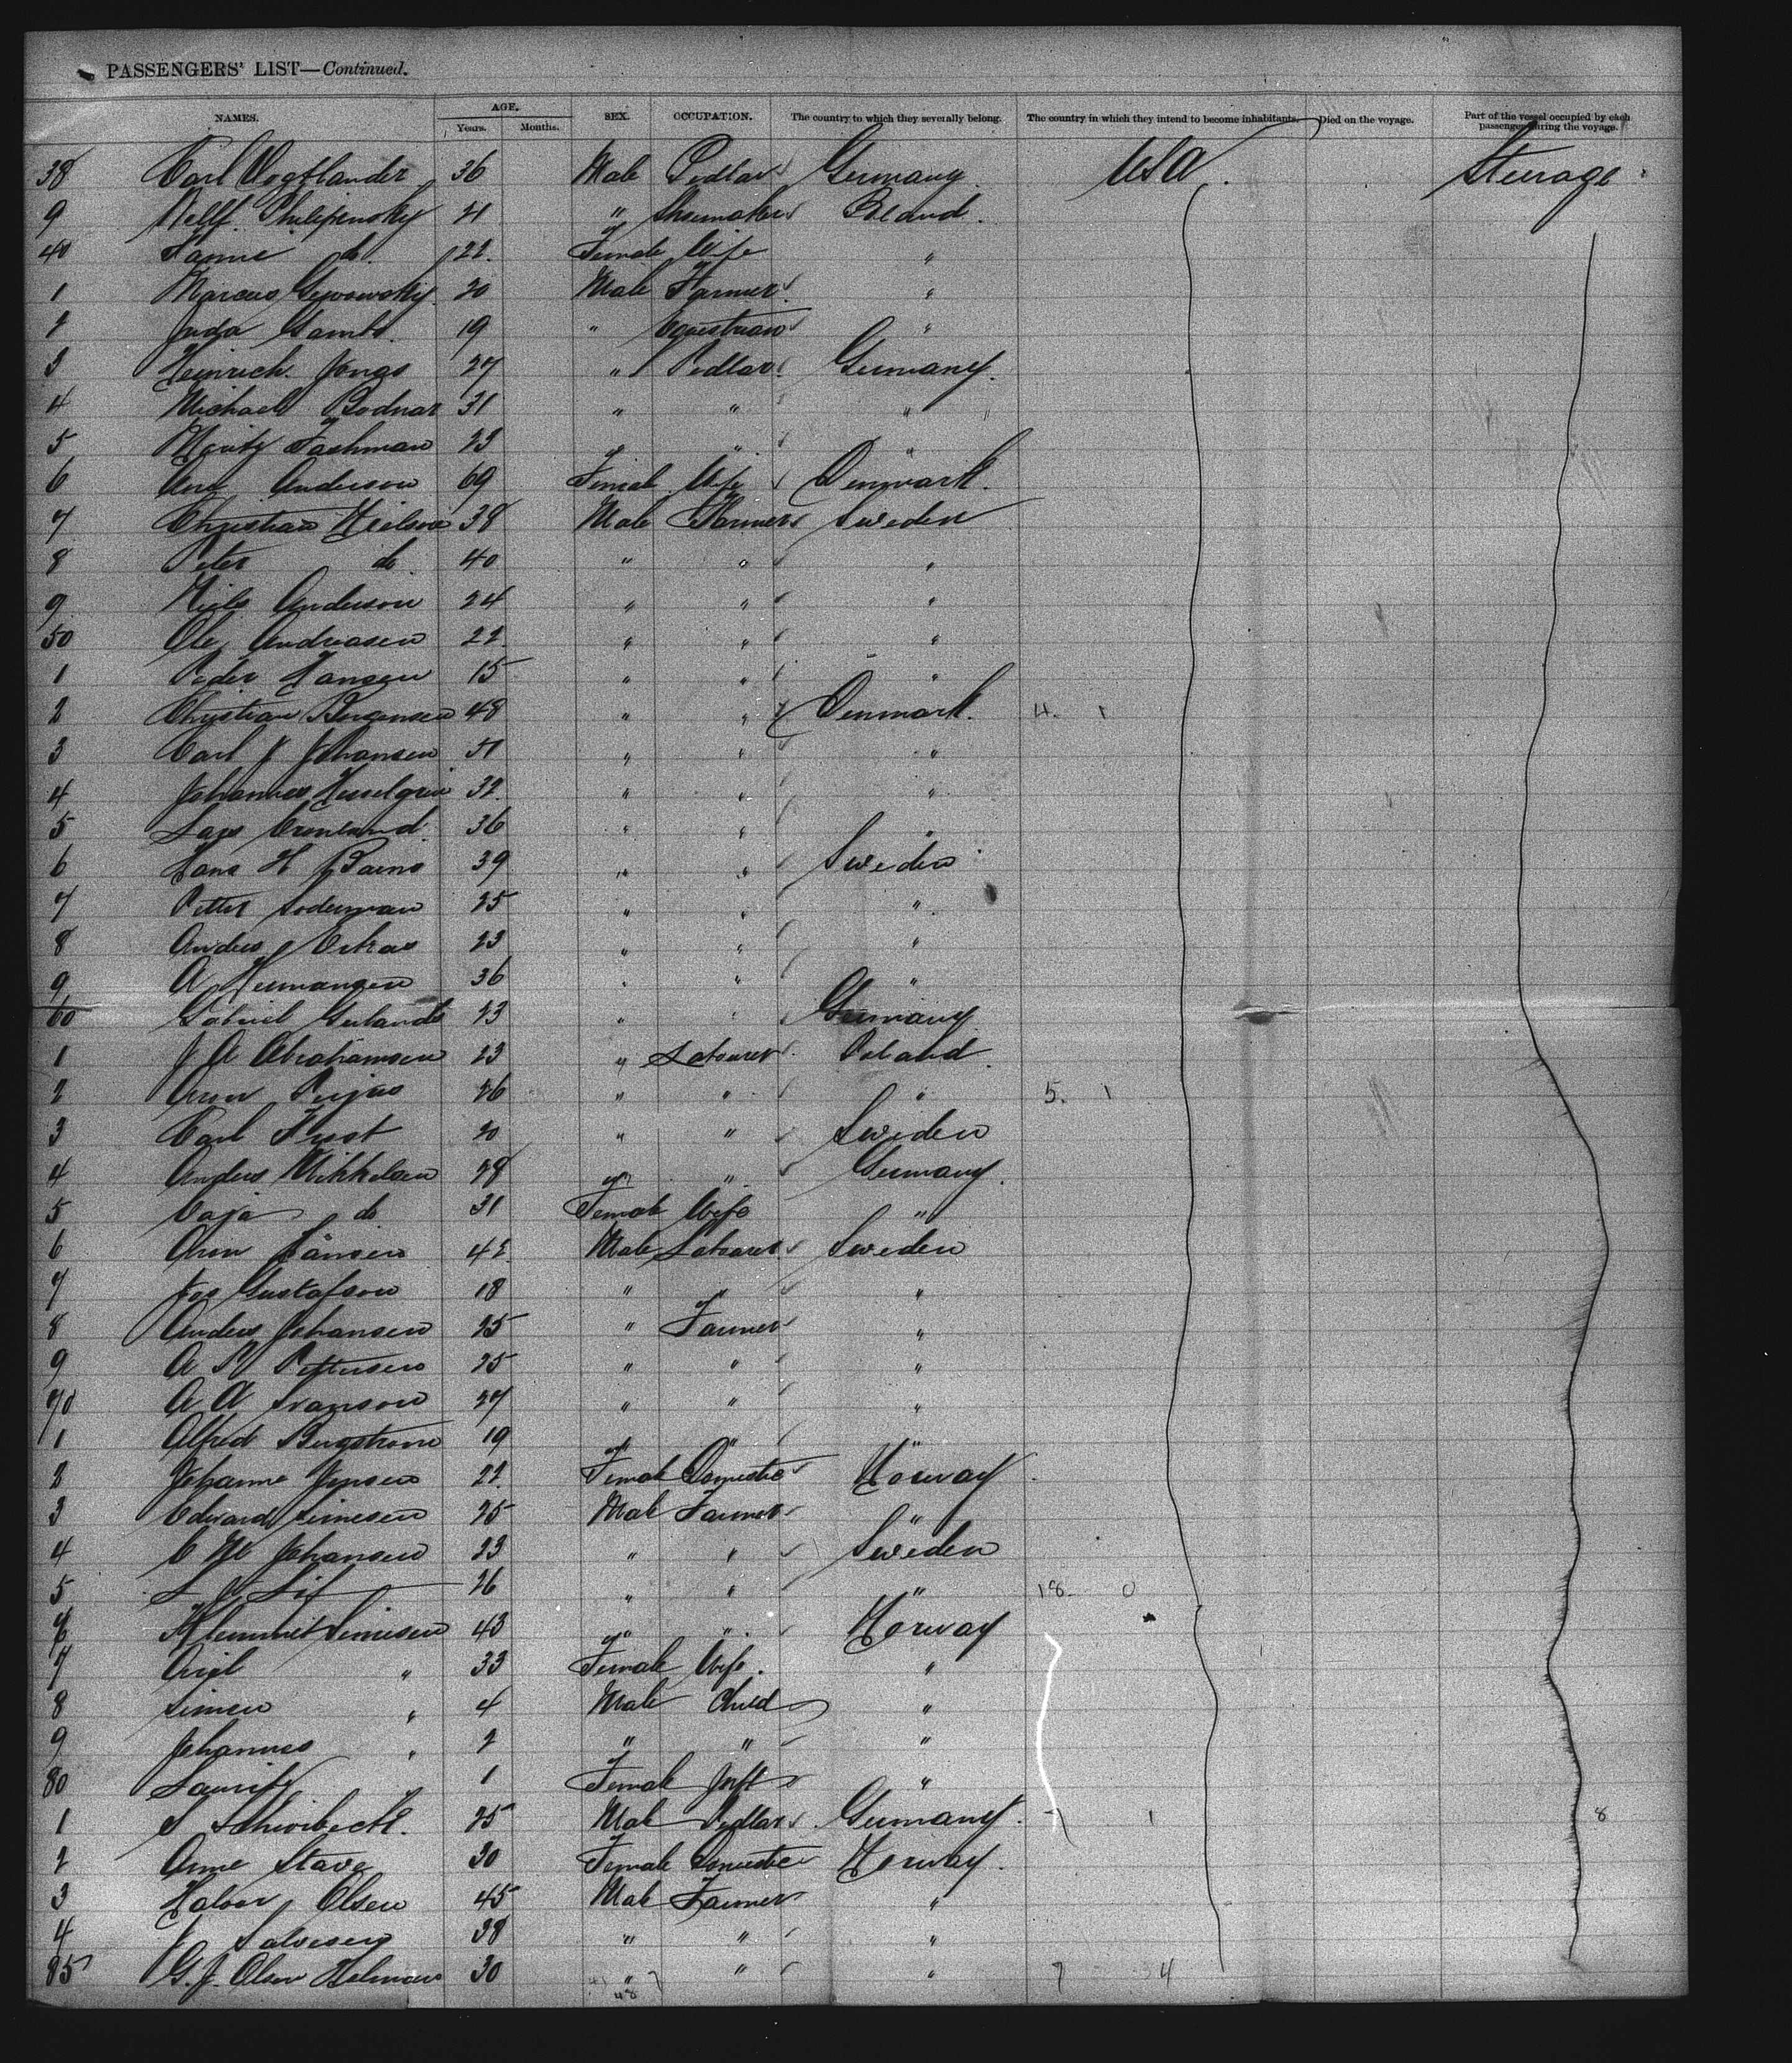 PASSENGERS' LIST—Continued.
NAMES. AGE. Years. Months. SEX. OCCUPATION. The country to which they severally belong. The country in which they intend to become inhabitants. Died on the voyage. Part of the vessel occupied by each passenger during the voyage.
38 Carl Vogtlander 36 Male Pedlar Germany USA Steerage
9 Philipensky 21 " Shoemaker Poland
40 Fannie do. 22 Female Wife "
1 Marcus 20 Male Farmer "
2 Juda 19 " Equestrian "
3 Heinrich Jonas 27 " Pedlar Germany.
4 Michael Bodnar 31 " " "
5 Moritz Fachman 23 " " "
6 Ane Anderson 69 Female Wife Denmark.
7 Christian Neilson 38 Male Farmer Sweden
8 Peter do 40 " " "
9 Niels Anderson 24 " " "
50 Ole Andreasen 22 " " "
1 Peder Hansen 15 " " "
2 Christian Bergensen 48 " " Denmark. 4. 1
3 Carl J Johansen 51 " " "
4 Johannes Hesselgrin 32 " " "
5 Lars 36 " " "
6 Hans H 39 " " Sweden
7 Petter Soderman 25 " " "
8 Anders 23 " " "
9 A Hermansen 36 " " "
60 Gabriel 23 " " Germany
1 J A Abrahamsen 23 " Labourer Poland
2 Aron 26 " " " 5. 1
3 Carl Frost 20 " " Sweden
4 Anders Mikkelsen 28 " " Germany.
5 Caja do 31 Female Wife "
6 Aron Jansen 42 Male Labourer Sweden
7 Jos Gustafson 18 " " "
8 Anders Johansen 25 " Farmer "
9 A Pettersen 25 " " "
70 A A Svanson 27 " " "
1 Alfred Bergstrom 19 " " "
2 Johanne Jensen 22 Female Domestic Norway
3 Edvard Simesen 25 Male Farmer "
4 C Johansen 23 " " Sweden
5 26 " " " 18. 0
6 Simesen 43 " " Norway
7 " 33 Female Wife. "
8 Simen " 4 Male Child "
9 Johannes " 2 " " "
80 Lauritz " 1 Female Inft "
1 S 25 Male Pedlar Germany. 7 1 8
2 Anne Stave 30 Female Domestic Norway.
3 Halvor Olsen 45 Male Farmer "
4 J Salvesen 38 " " "
85 G. J. Olsen 30 " " " 7 4
48